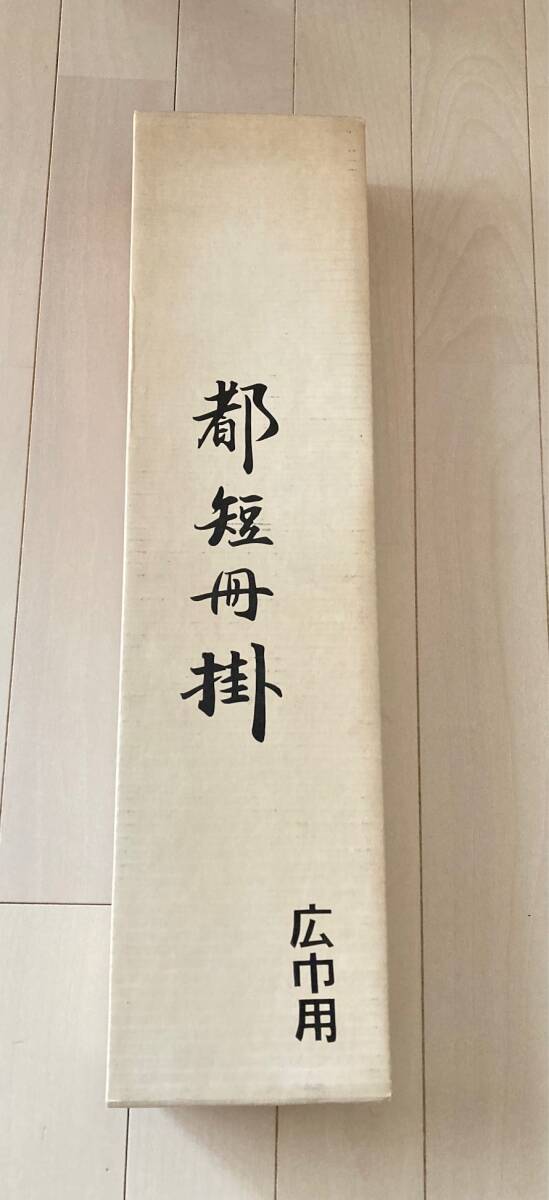 都短冊掛
広巾用